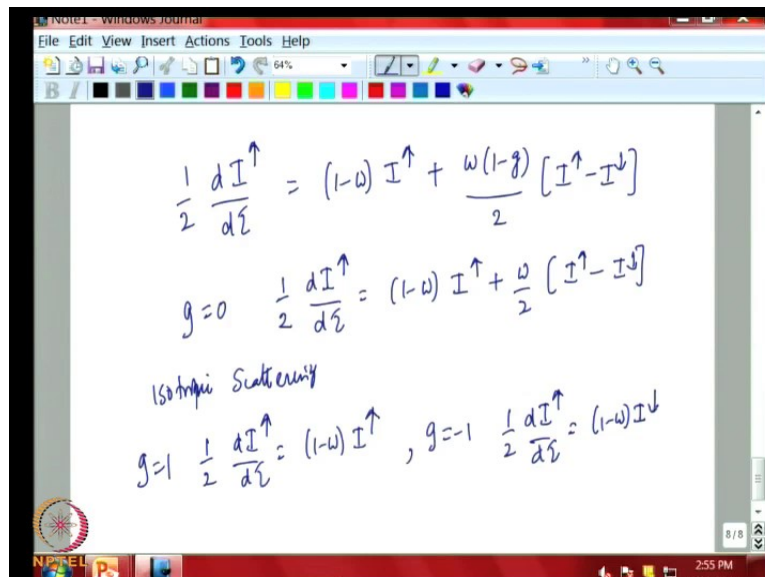 Note1 - Windows Journal
File Edit View Insert Actions Tools Help
64%
B I
1/2 dI↑/dξ = (1-ω) I↑ + ω(1-g)/2 [I↑ - I↓]
g=0 1/2 dI↑/dξ = (1-ω) I↑ + ω/2 [I↑ - I↓]
Isotropic Scattering
g=1 1/2 dI↑/dξ = (1-ω) I↑ , g=-1 1/2 dI↑/dξ = (1-ω) I↓
8/8
NPTEL
2:55 PM